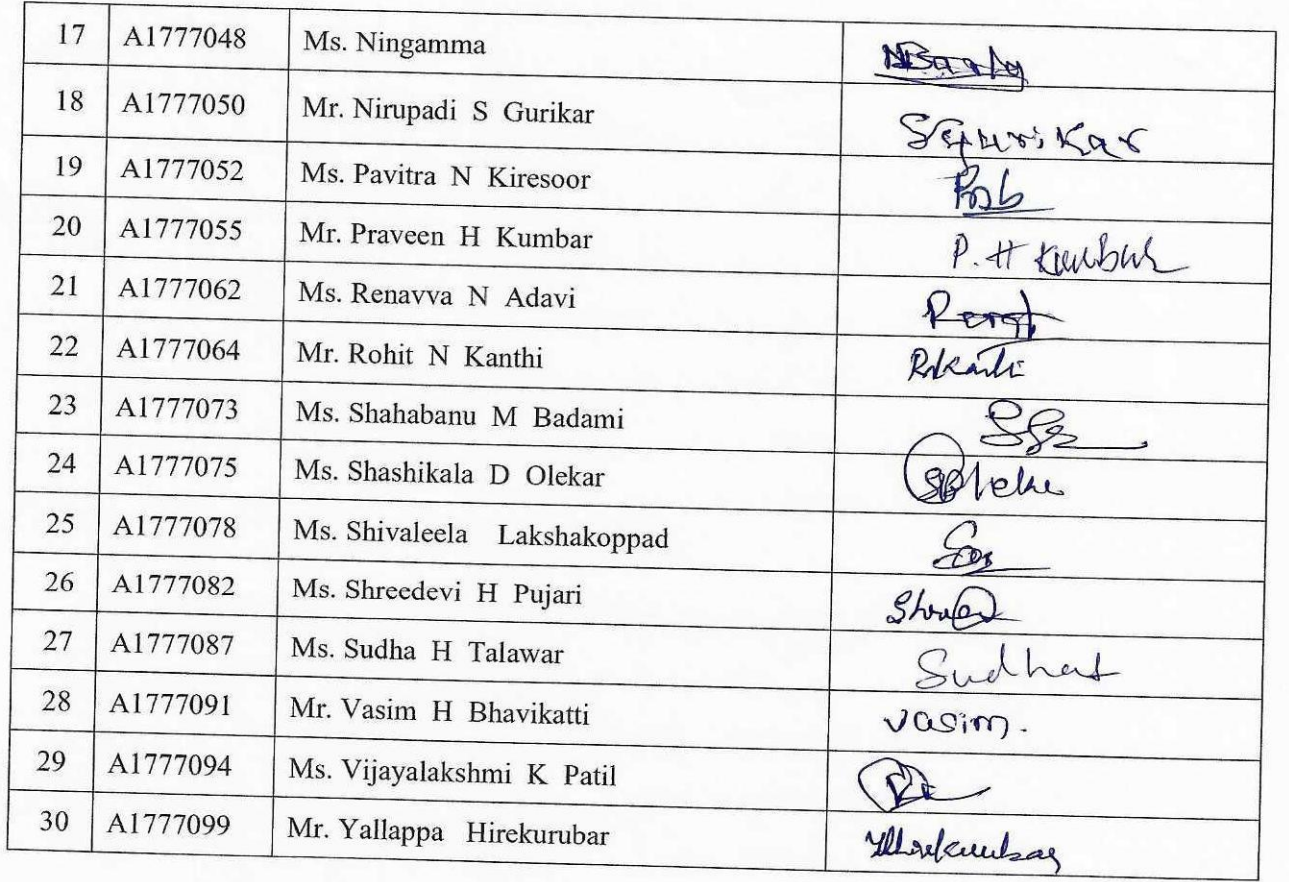 17 A1777048 Ms. Ningamma
18 A1777050 Mr. Nirupadi S Gurikar Sgurikar
19 A1777052 Ms. Pavitra N Kiresoor
20 A1777055 Mr. Praveen H Kumbar P. H Kumbar
21 A1777062 Ms. Renavva N Adavi
22 A1777064 Mr. Rohit N Kanthi
23 A1777073 Ms. Shahabanu M Badami
24 A1777075 Ms. Shashikala D Olekar
25 A1777078 Ms. Shivaleela Lakshakoppad
26 A1777082 Ms. Shreedevi H Pujari
27 A1777087 Ms. Sudha H Talawar Sudhat
28 A1777091 Mr. Vasim H Bhavikatti vasim.
29 A1777094 Ms. Vijayalakshmi K Patil
30 A1777099 Mr. Yallappa Hirekurubar